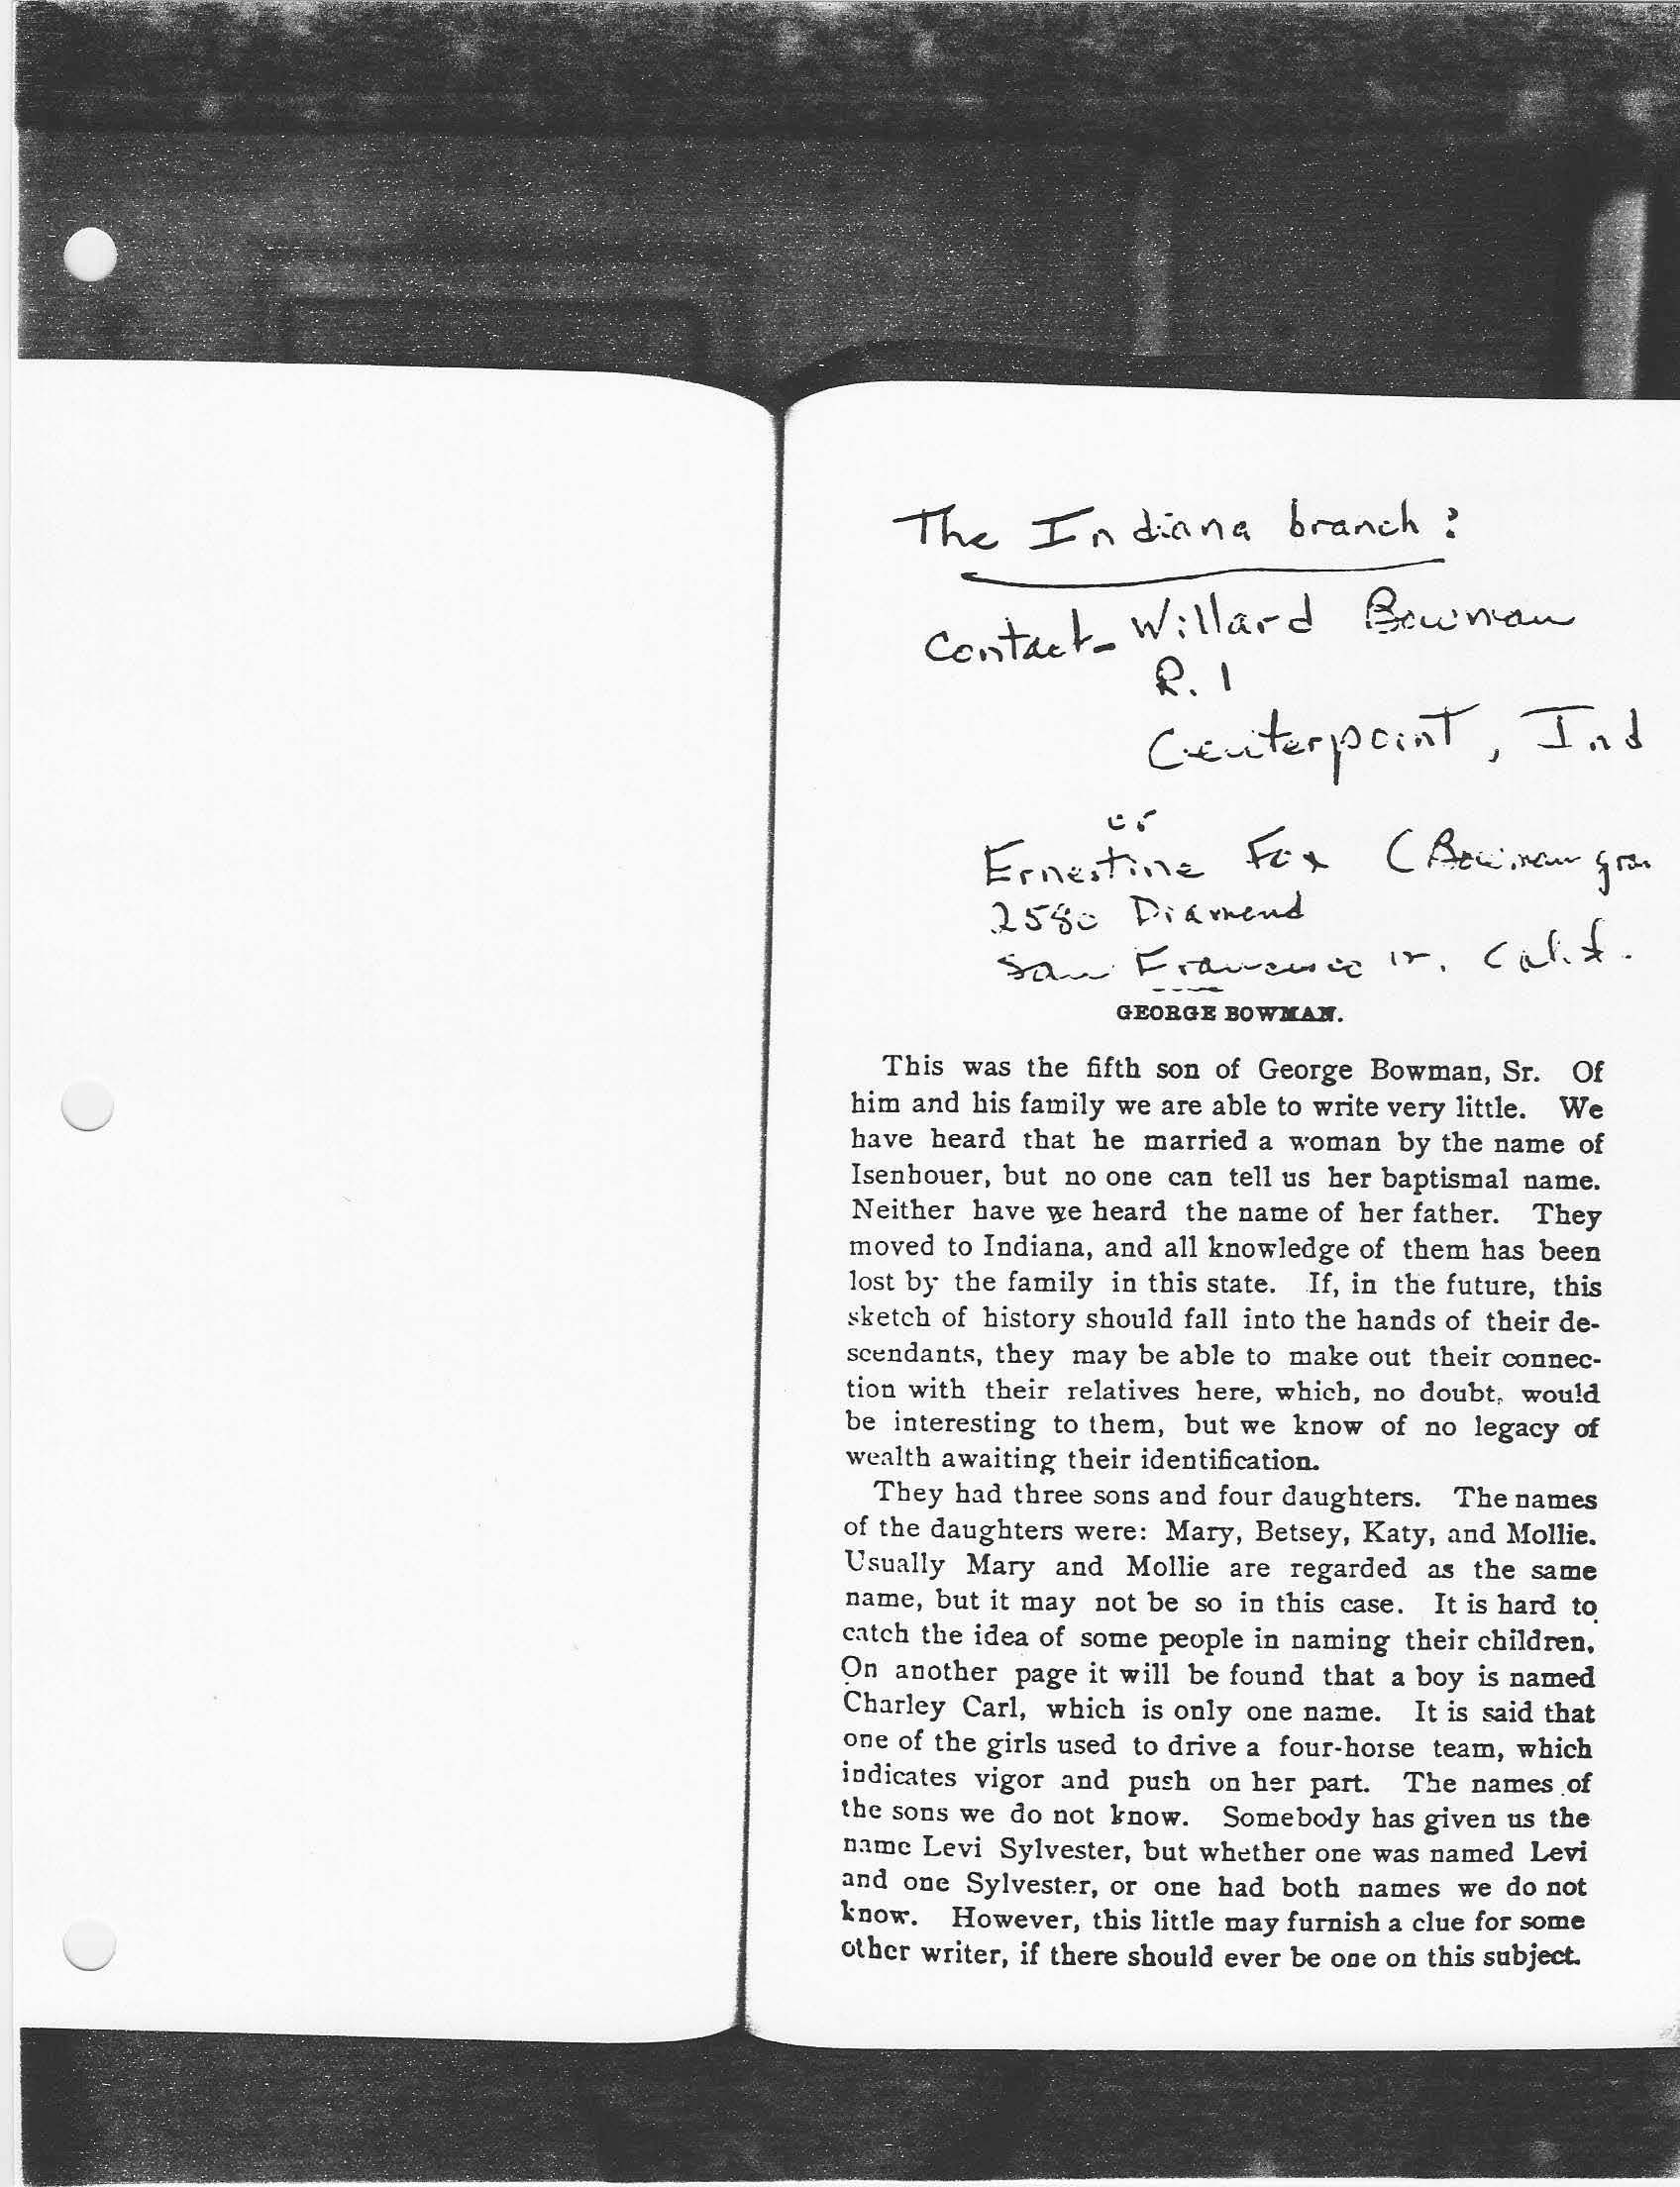 The Indiana branch:
contact- Willard Bowman
R. 1
Centerpoint, Ind
or
Ernestine Fox (Bowman
2580 Diamond
San Francisco Calif.
GEORGE BOWMAN.
This was the fifth son of George Bowman, Sr. Of
him and his family we are able to write very little. We
have heard that he married a woman by the name of
Isenhouer, but no one can tell us her baptismal name.
Neither have we heard the name of her father. They
moved to Indiana, and all knowledge of them has been
lost by the family in this state. If, in the future, this
sketch of history should fall into the hands of their de-
scendants, they may be able to make out their connec-
tion with their relatives here, which, no doubt, would
be interesting to them, but we know of no legacy of
wealth awaiting their identification.
They had three sons and four daughters. The names
of the daughters were: Mary, Betsey, Katy, and Mollie.
Usually Mary and Mollie are regarded as the same
name, but it may not be so in this case. It is hard to
catch the idea of some people in naming their children.
On another page it will be found that a boy is named
Charley Carl, which is only one name. It is said that
one of the girls used to drive a four-horse team, which
indicates vigor and push on her part. The names of
the sons we do not know. Somebody has given us the
name Levi Sylvester, but whether one was named Levi
and one Sylvester, or one had both names we do not
know. However, this little may furnish a clue for some
other writer, if there should ever be one on this subject.